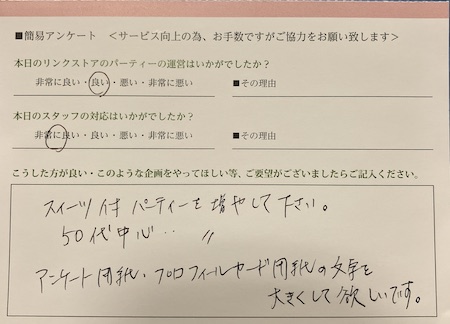 ■簡易アンケート ＜サービス向上の為、お手数ですがご協力をお願い致します＞
本日のリンクストアのパーティーの運営はいかがでしたか？
非常に良い・良い・悪い・非常に悪い ■その理由
本日のスタッフの対応はいかがでしたか？
非常に良い・良い・悪い・非常に悪い ■その理由
こうした方が良い・このような企画をやってほしい等、ご要望がございましたらご記入ください。
スイーツ付パーティーを増やして下さい。
50代中心‥ 〃
アンケート用紙、プロフィールカード用紙の文字を
大きくして欲しいです。